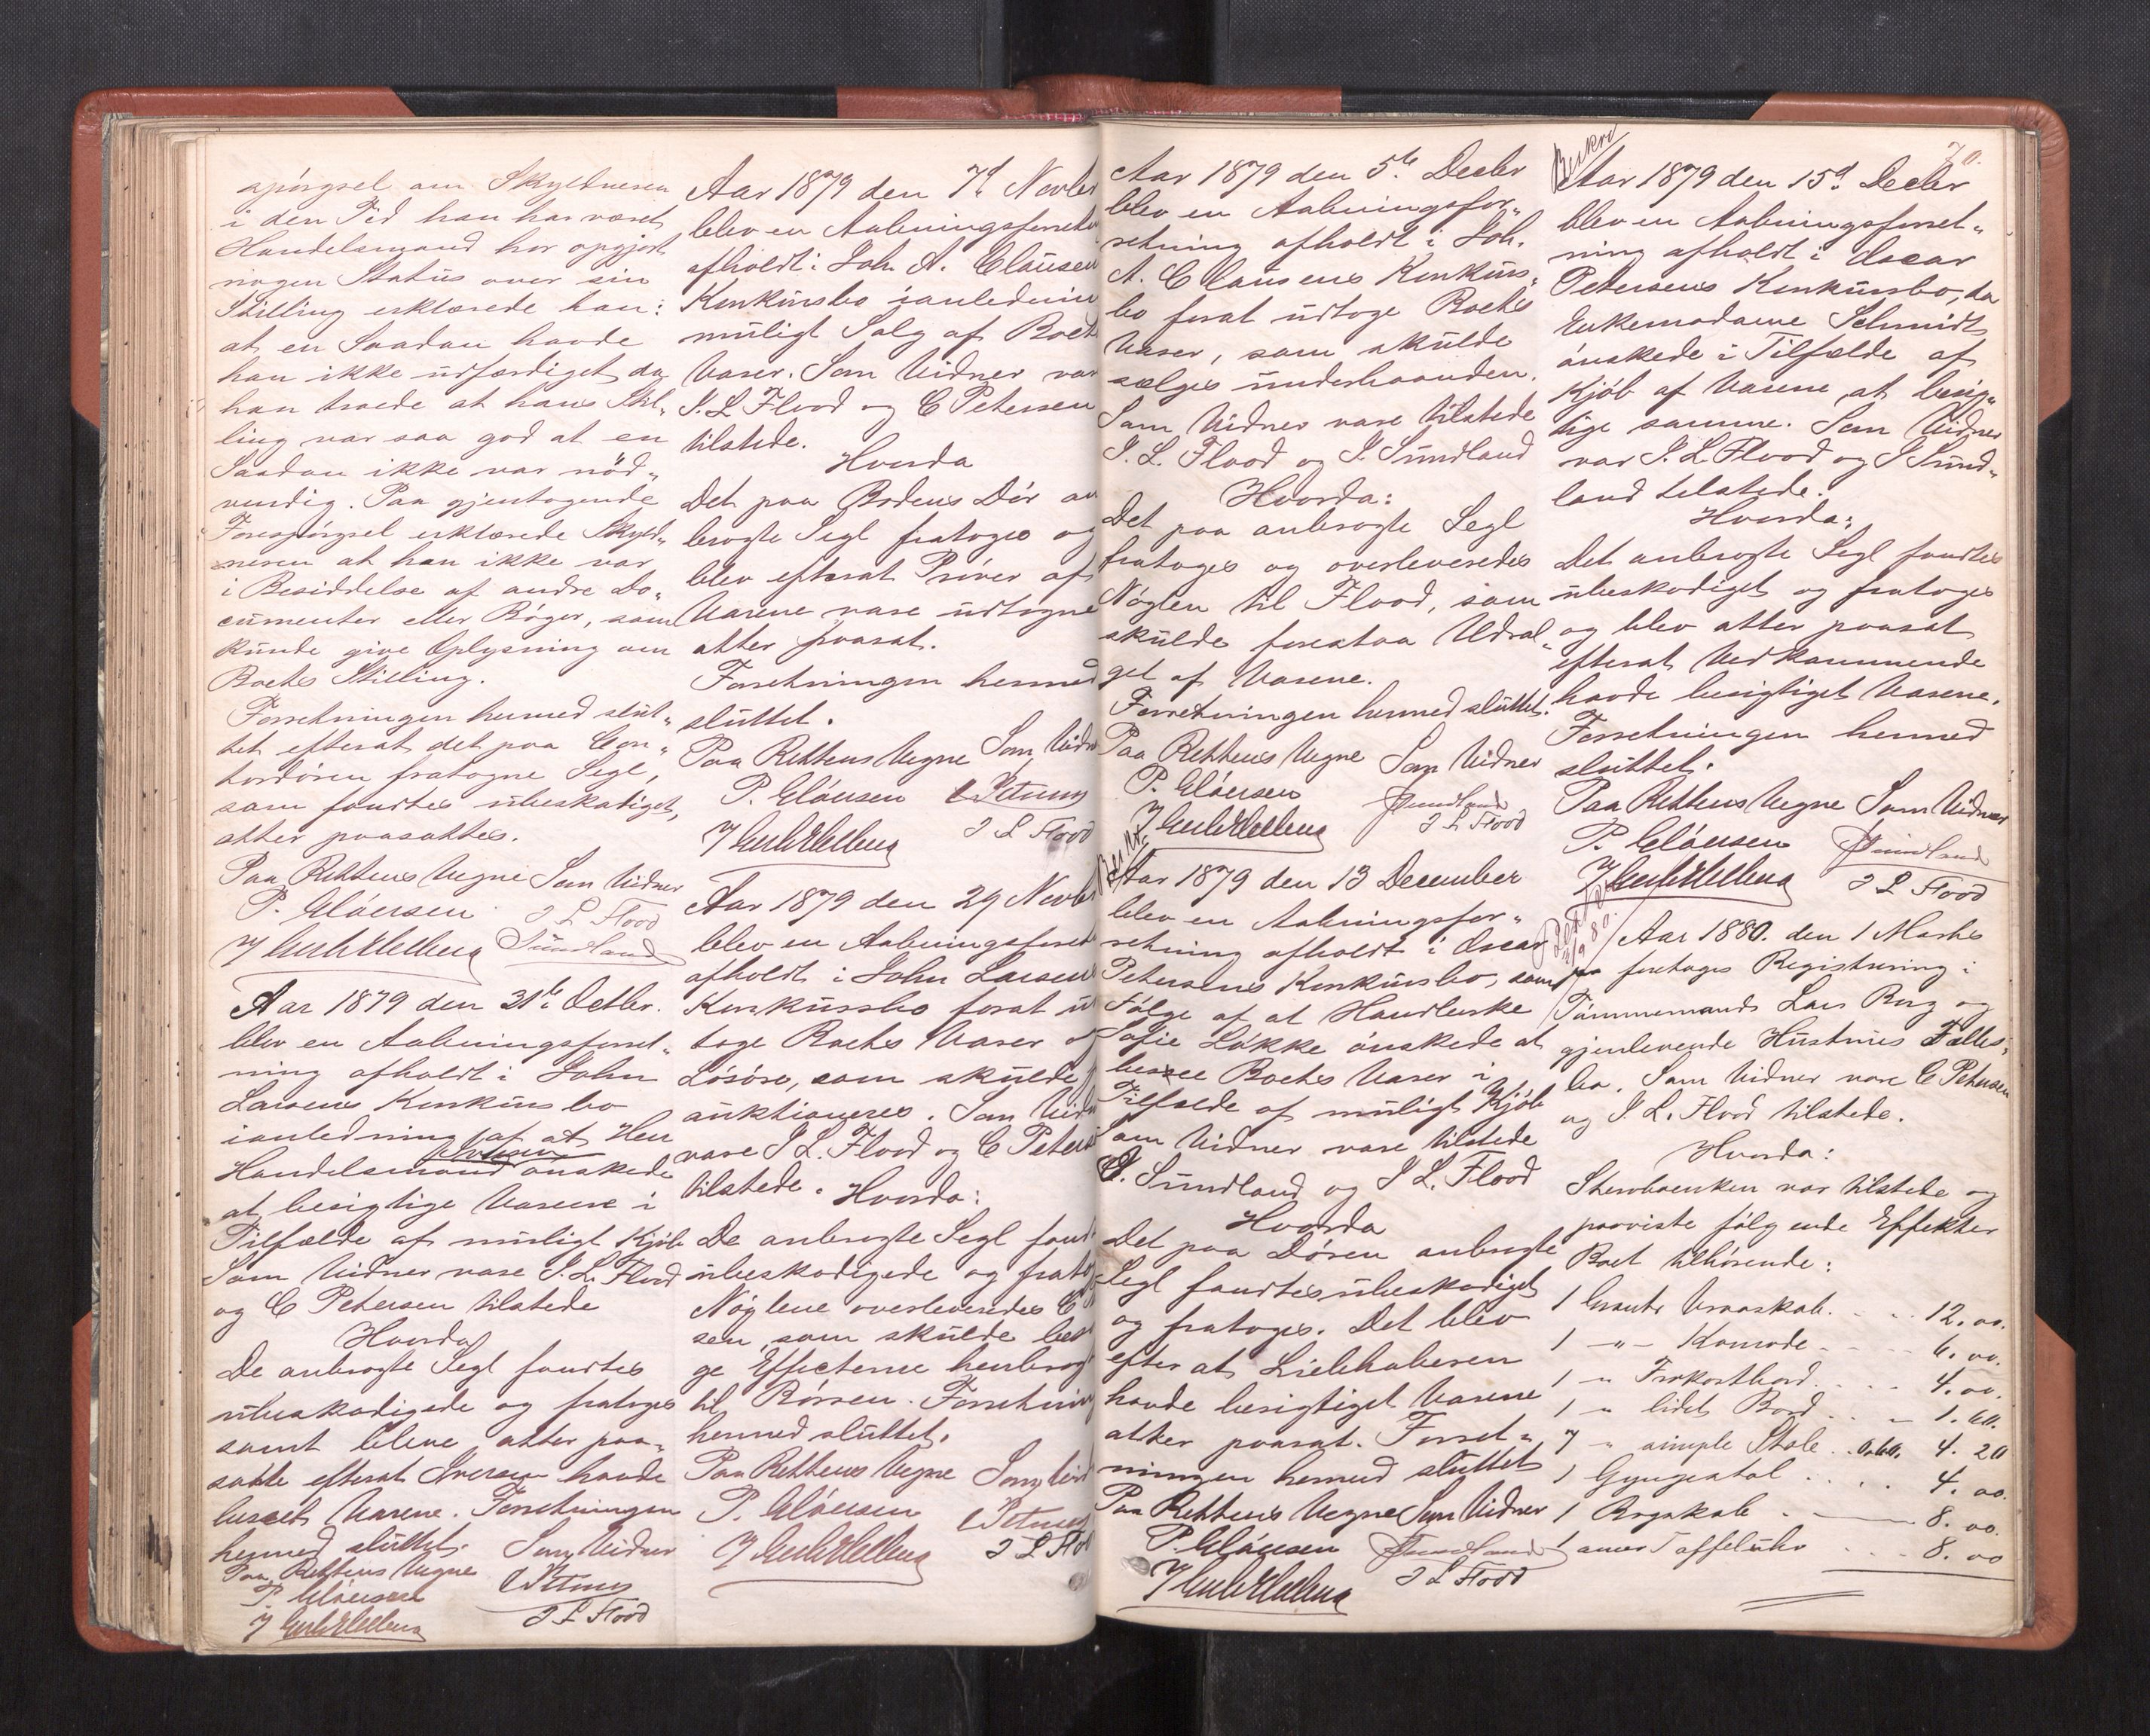 spörgsel om Skyldneren
i den Tid han har været
Handelsmand har opgjort
nogen Status over sin
Stilling erklærede han:
at en Saadan havde
han ikke udfærdiget da
han troede at hans Stil„
ling var saa god at en
Saadan ikke var nöd„
vendig. Paa gjentagende
Forespörgsel erklærede Skyld„
neren at han ikke var
i Besiddelse af andre Do„
cumenter eller Böger, som
kunde give Oplysning om
Boets Stilling.
Forretningen hermed slut„
tet efterat det paa Con„
tordören fratagne Segl,
som fandtes ubeskadiget,
atter paasattes.
Paa Rettens Vegne Som Vidner
P. Clausen J L Flood
Sundland
Aar 1879 den 31te Octbr.
blev en Aabningsforret„
ning afholdt i John
Larsens Konkursbo
ianledning af at Herr
Handelsmand Iversen önskede
at besigtige Varerne i
Tilfælde af muligt Kjöb
Som Vidner vare J. L. Flood
og C Petersen tilstede
Hvorda
De anbragte Segl fandtes
ubeskadigede og fratoges
samt bleve atter paa„
satte efterat Iversen havde
beseet Varene. Forretningen
hermed sluttet. Som Vidner
Paa Rettens Vegne
P. Clausen C Petersen
J L Flood
Aar 1879 den 7d Novbr
blev en Aabningsforretn
afholdt i Joh A. Clausens
Konkursbo ianlednin
muligt Salg af Boets
Varer. Som Vidner var
J. L Flood og C Petersen
tilstede.
Hvorda
Det paa Bodens Dör an
bragte Segl fratoges og
blev efterat Pröver af
Varene vare udtagne
atter paasat.
Forretningen hermed
sluttet.
Paa Rettens Vegne Som Vidn
P. Clausen C Petersen
J L Flood
Aar 1879 den 29 Novbr
blev en Aabningsforret
afholdt i John Larsens
Konkursbo forat ud
tage Boets Varer og
Lösöre, som skulde
auktioneres. Som Vidn
vare J L. Flood og C Peters
tilstede. Hvorda:
De anbragte Segl fand
ubeskadigede og fratog
Nöglene overleveredes C
sen, som skulde besör
ge Effecterne henbragt
til Börsen. Forretning
hermed sluttet.
Paa Rettens Vegne Som Vid
P. Clausen C Petersen
J L Flo
Aar 1879 den 5te Decbr
blev en Aabningsfor„
retning afholdt i Joh.
A. Clausens Konkurs„
bo forat udtage Boets
Varer, som skulde
sælges underhaanden.
Som Vidner vare tilstede
J. L. Flood og J. Sundland
Hvorda:
Det paa anbragte Segl
fratoges og overleveredes
Nöglen til Flood, som
skulde forestaa Udsal„
get af Varene.
Forretningen hermed sluttet.
Paa Rettens Vegne Som Vidner
P. Clausen Sundland
J L Flood
Aar 1879 den 13 December
blev en Aabningsfor„
retning afholdt i Oscar
Petersens Konkursbo, som
Fölge af at Handlerske
Sofie Lökke önskede at
besee Boets Varer i
Tilfælde af muligt Kjöb
Som Vidner vare tilstede
J. Sundland og J L. Flood
Hvorda
Det paa Dören anbragte
Segl fandtes ubeskadiget
og fratoges. Det blev
efter at Liebhaberen
havde besigtiget Varene
atter paasat. Forret„
ningen hermed sluttet
Paa Rettens Vegne Som Vidner
P. Clausen Sundland
J L Flood
70.
Beskrev
Aar 1879 den 15d Decbr
blev en Aabningsforret„
ning afholdt i Oscar
Petersens Konkursbo, da
Enkemadame Schmidt
önskede i Tilfælde af
Kjöb af Varene, at besig„
tige samme. Som Vidner
var J. L. Flood og J Sund„
land tilstede.
Hvorda:
Det anbragte Segl fandtes
ubeskadiget og fratoges
og blev atter paasat
efterat Vedkommende
havde besigtiget Varene.
Forretningen hermed
sluttet.
Paa Rettens Vegne Som Vidner
P. Clausen Sundland
J L Flood
Aar 1880. den 1 Marts
foretoges Registrering i
Tömmermand Lars Berg og
gjenlevende Hustrues Fælles„
bo. Som Vidner vare C Petersen
og J. L. Flood tilstede.
Hvorda:
Stervboenken var tilstede og
paaviste fölgende Effekter
Boet tilhörende:
1 brunt Vraaskab. 12. 00.
1 -"- Komode 6. 00.
1 " Frokostbord 4. 00.
1 " lidet Bord 1. 60.
7 " simple Stole 0.60. 4. 20
1 Gyngestol 4. 00.
1 Bogskab 8. 00.
1 amer Taffeluhr 8. 00